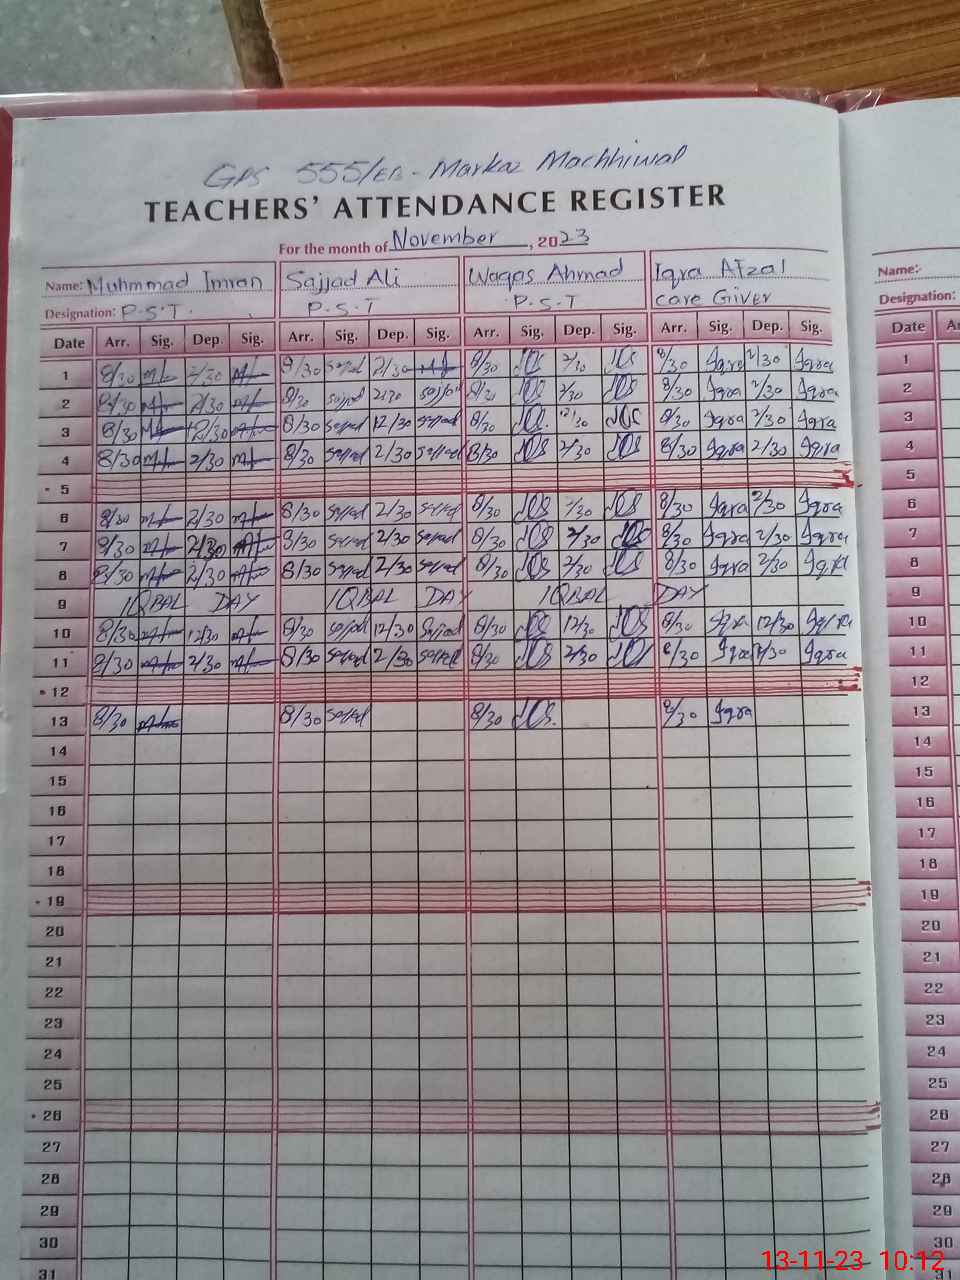 GPS 555/EB - Markaz Machhiwal
TEACHERS' ATTENDANCE REGISTER
For the month of November, 2023
Name: Muhmmad Imran Sajjad Ali Waqas Ahmad Iqra Afzal Name:
Designation: P.S.T. P.S.T P.S.T Care Giver Designation:
Date Arr. Sig. Dep. Sig. Arr. Sig. Dep. Sig. Arr. Sig. Dep. Sig. Arr. Sig. Dep. Sig. Date
1 8/30 2/30 8/30 2/30 8/30 2/30 8/30 Iqra 2/30 Iqra 1
2 8/30 2/30 8/30 2/30 8/30 2/30 8/30 Iqra 2/30 Iqra 2
3 8/30 12/30 8/30 12/30 8/30 12/30 8/30 Iqra 2/30 Iqra 3
4 8/30 2/30 8/30 2/30 8/30 2/30 8/30 Iqra 2/30 Iqra 4
5 5
6 8/30 2/30 8/30 2/30 8/30 2/30 8/30 Iqra 2/30 Iqra 6
7 8/30 2/30 8/30 2/30 8/30 2/30 8/30 Iqra 2/30 Iqra 7
8 8/30 2/30 8/30 2/30 8/30 2/30 8/30 Iqra 2/30 Iqra 8
9 IQBAL DAY IQBAL DAY IQBAL DAY 9
10 8/30 12/30 8/30 12/30 Sajjad 8/30 12/30 8/30 Iqra 12/30 Iqra 10
11 8/30 2/30 8/30 2/30 8/30 2/30 8/30 Iqra 2/30 Iqra 11
12 12
13 8/30 8/30 8/30 8/30 Iqra 13
14 14
15 15
16 16
17 17
18 18
19 19
20 20
21 21
22 22
23 23
24 24
25 25
26 26
27 27
28 28
29 29
30 30
31 31
13-11-23 10:12